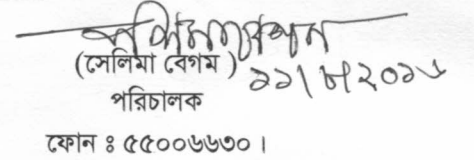 (সেলিমা বেগম)
১১/৮/২০১৬
পরিচালক
ফোন ঃ ৫৫০০৬৬৩০।